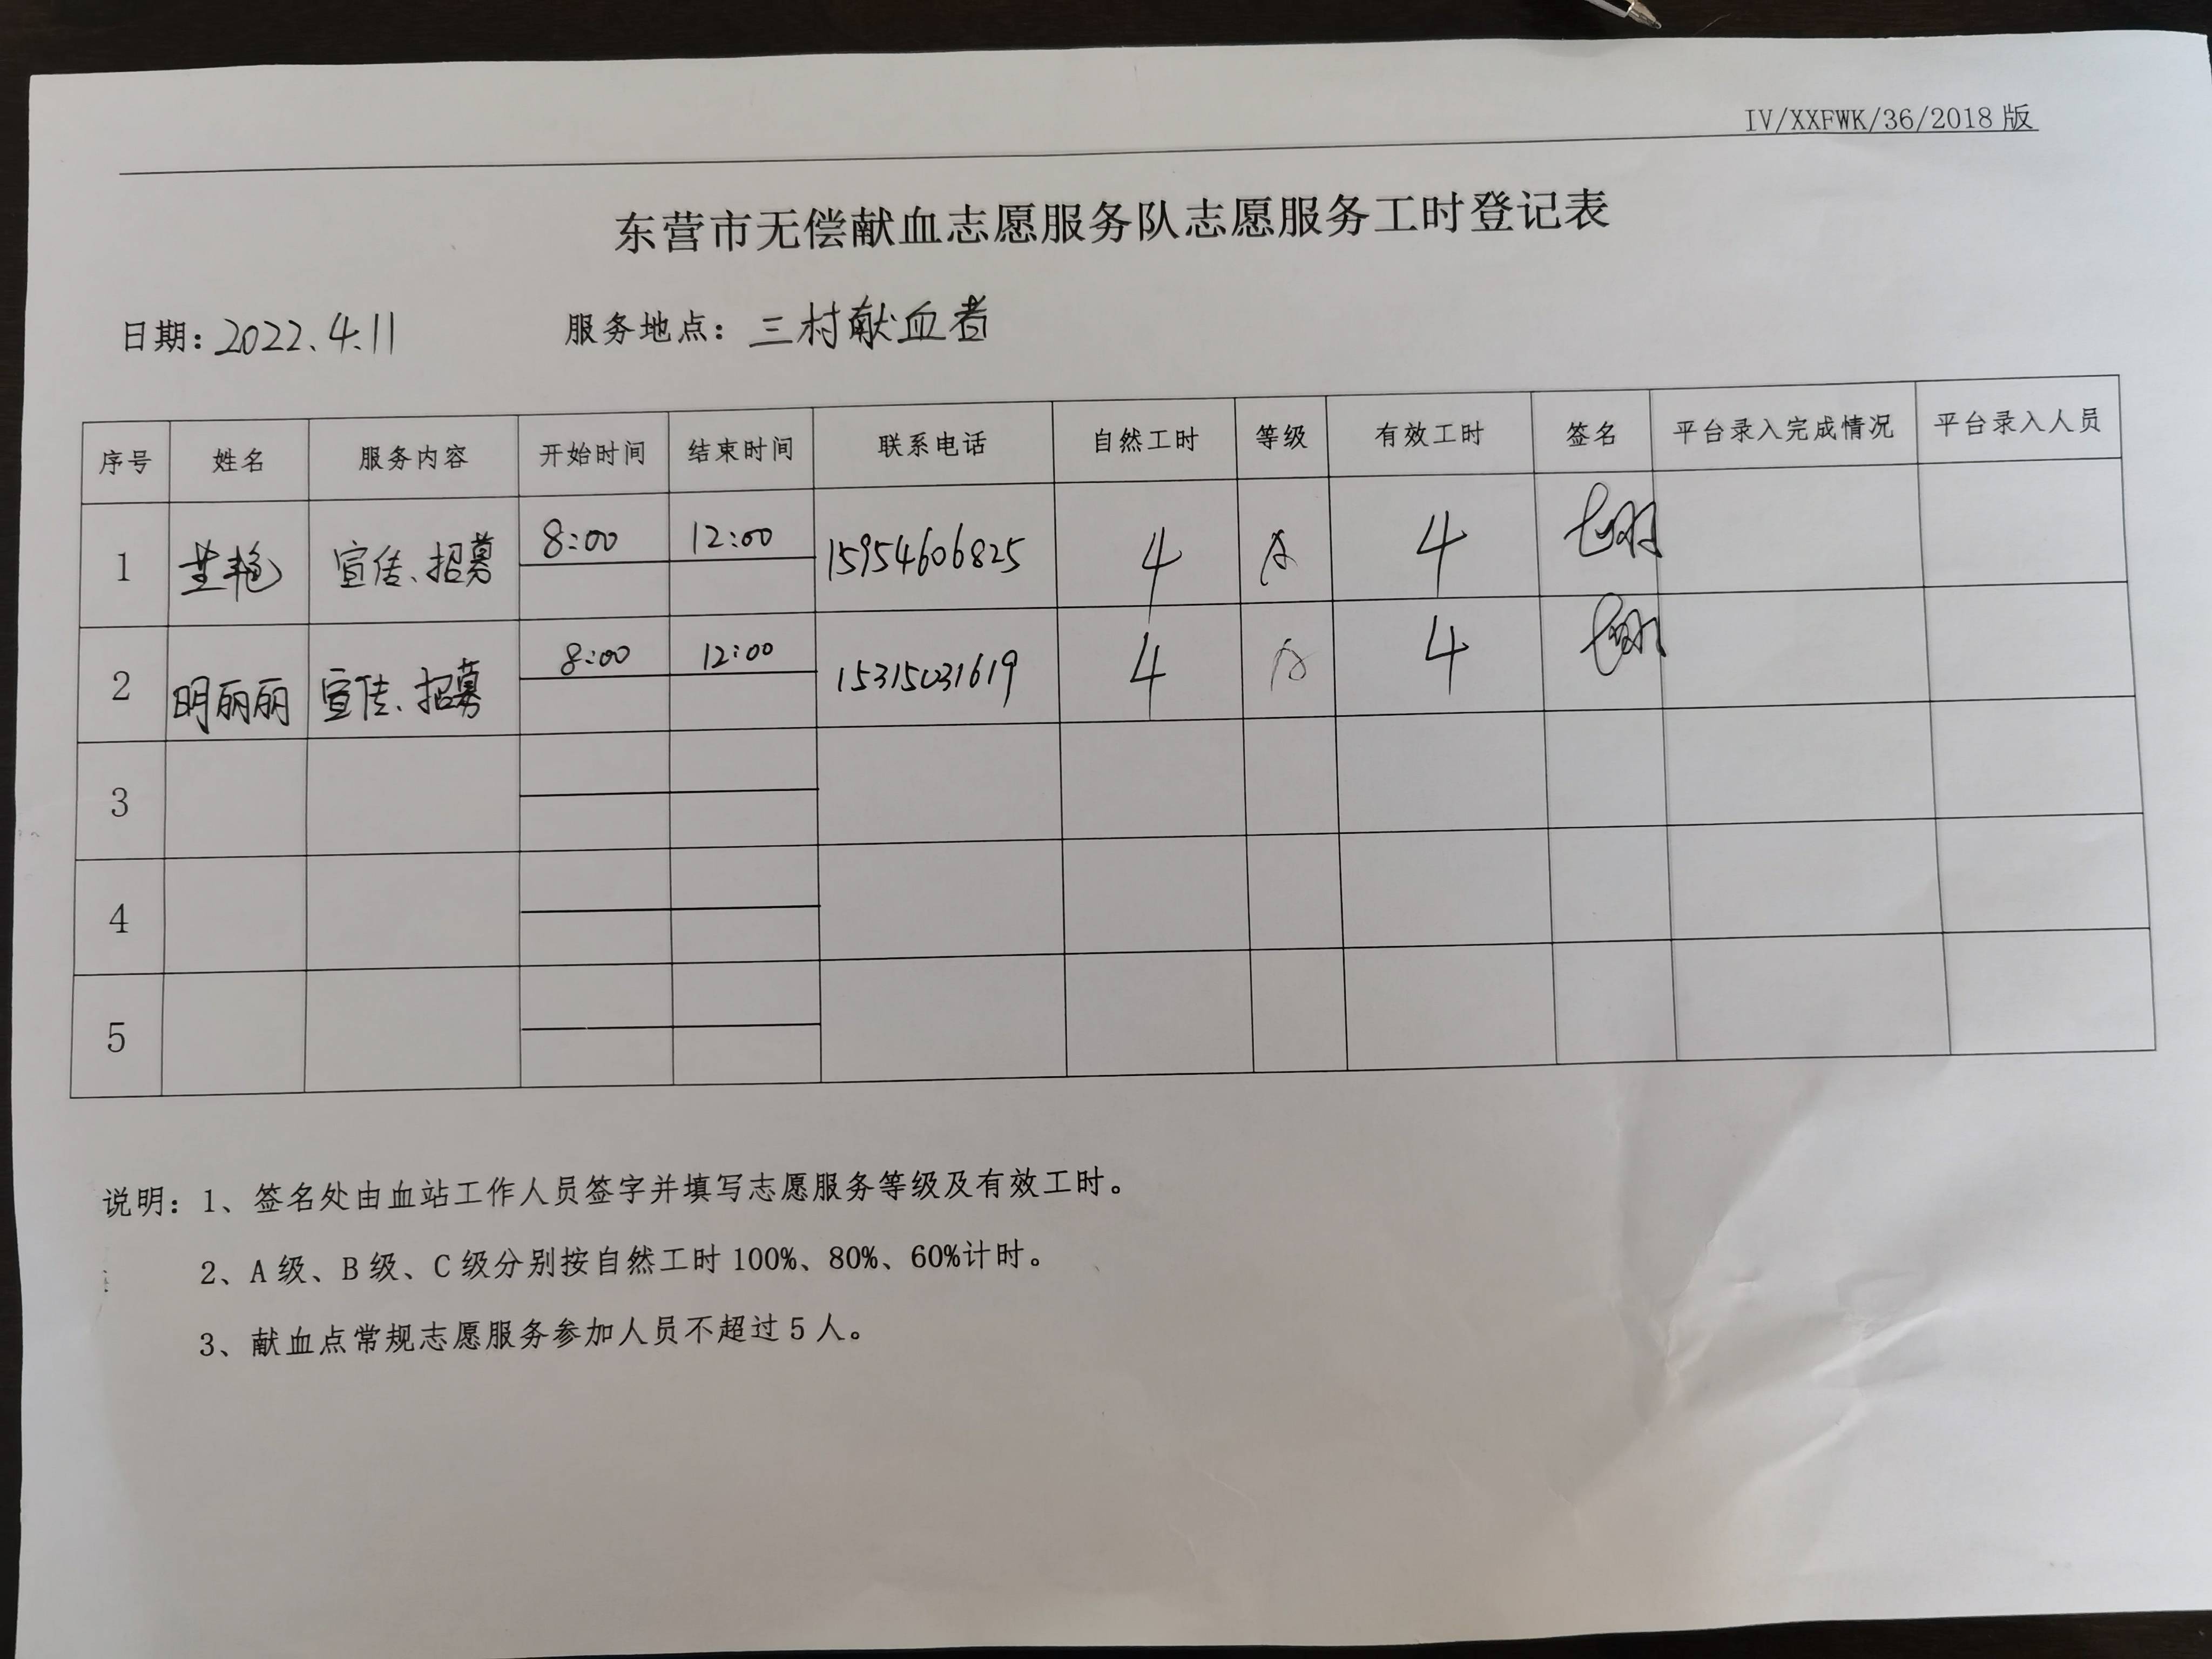 IV/XXFWK/36/2018 版
东营市无偿献血志愿服务队志愿服务工时登记表
日期：2022.4.11 服务地点：三村献血者
序号 姓名 服务内容 开始时间 结束时间 联系电话 自然工时 等级 有效工时 签名 平台录入完成情况 平台录入人员
1 宣传、招募 8:00 12:00 15954606825 4 A 4
2 明丽丽 宣传、招募 8:00 12:00 15315031619 4 A 4
3
4
5
说明：1、签名处由血站工作人员签字并填写志愿服务等级及有效工时。
2、A 级、B 级、C 级分别按自然工时 100%、80%、60%计时。
3、献血点常规志愿服务参加人员不超过 5 人。